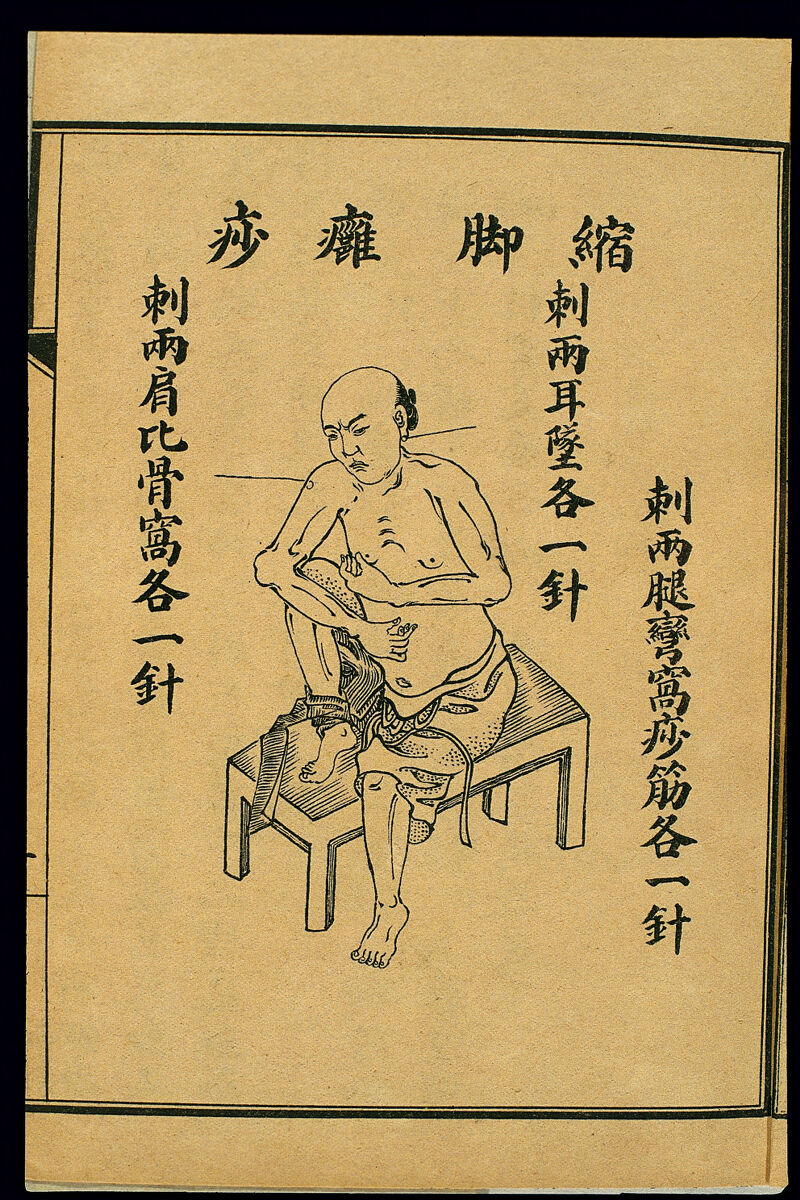 縮脚癰痧
刺兩腿彎窩痧筋各一針
刺兩耳墜各一針
刺兩肩比骨窩各一針